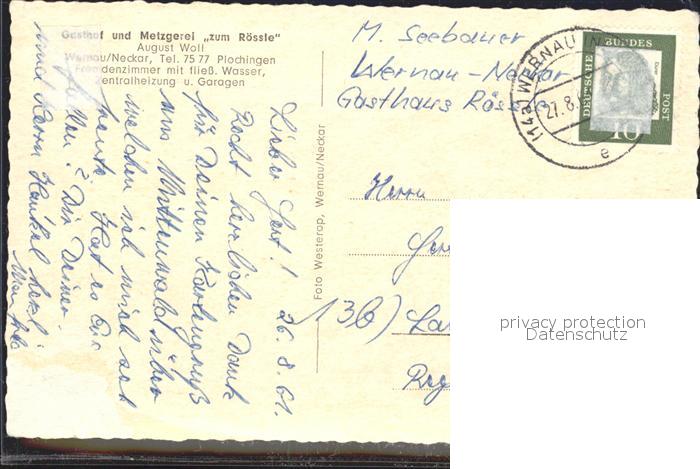 Gasthof und Metzgerei „zum Rössle"
August Woll
Wernau/Neckar, Tel. 75 77 Plochingen
Fremdenzimmer mit fließ. Wasser,
Zentralheizung u. Garagen
M. Seebauer
Wernau-Neckar
Gasthaus Rössle
(14a) WERNAU (N
27.8.
e
DEUTSCHE
BUNDES
POST
10
26. 8. 61.
Lieber Gert!
Recht herzlichen Dank
für Deinen Kartengruß
aus Mittenwald über
welchen ich mich sehr
freute. Hat es Dir
gefallen? Dir Deiner
und Herrn Henkel herzl.
Foto Westerop, Wernau/Neckar
Herrn
Ger
13b) La
Reg
privacy protection
Datenschutz